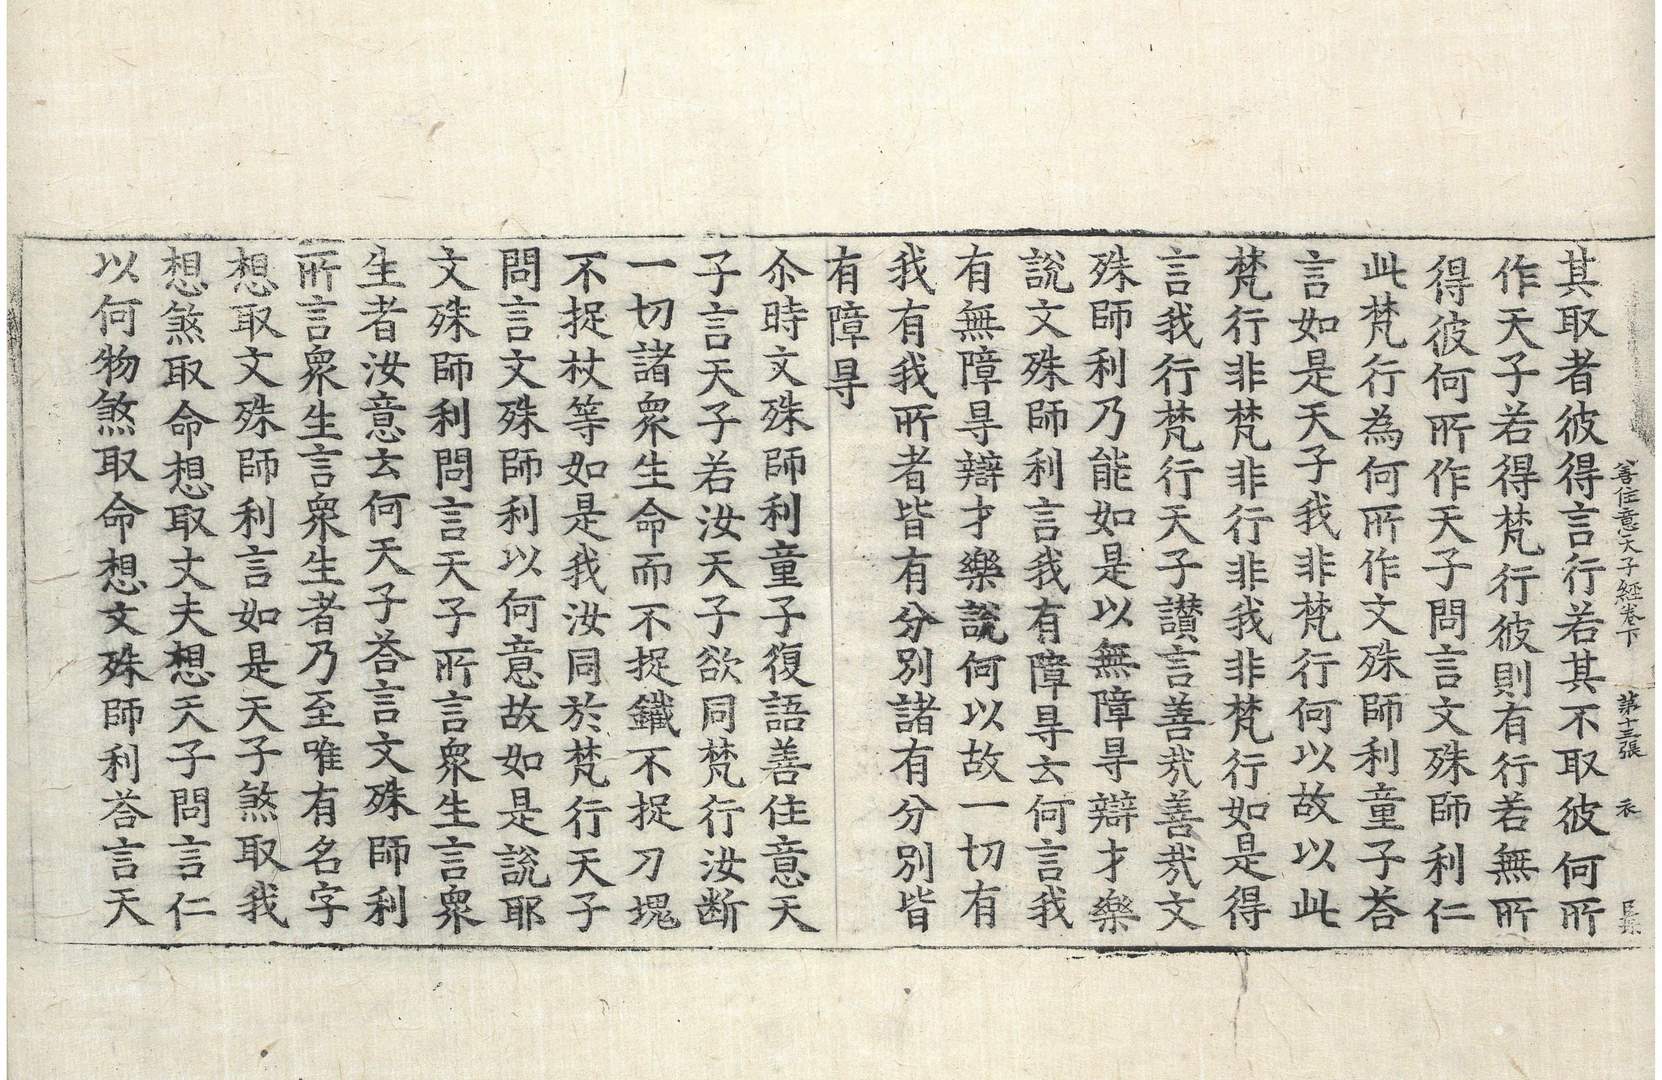 善住意天子經卷下　第十三張　衣
其取者彼得言行若其不取彼何所
作天子若得梵行彼則有行若無所
得彼何所作天子問言文殊師利仁
此梵行為何所作文殊師利童子荅
言如是天子我非梵行何以故以此
梵行非梵非行非我非梵行如是得
言我行梵行天子讃言善㢤善㢤文
殊師利乃能如是以無障㝵辯才樂
說文殊師利言我有障㝵云何言我
有無障㝵辯才樂說何以故一切有
我有我所者皆有分別諸有分別皆
有障㝵
尒時文殊師利童子復語善住意天
子言天子若汝天子欲同梵行汝斷
一切諸衆生命而不捉鐵不捉刀塊
不捉杖等如是我汝同於梵行天子
問言文殊師利以何意故如是說耶
文殊師利問言天子所言衆生言衆
生者汝意云何天子荅言文殊師利
所言衆生言衆生者乃至唯有名字
想取文殊師利言如是天子煞取我
想煞取命想取丈夫想天子問言仁
以何物煞取命想文殊師利荅言天